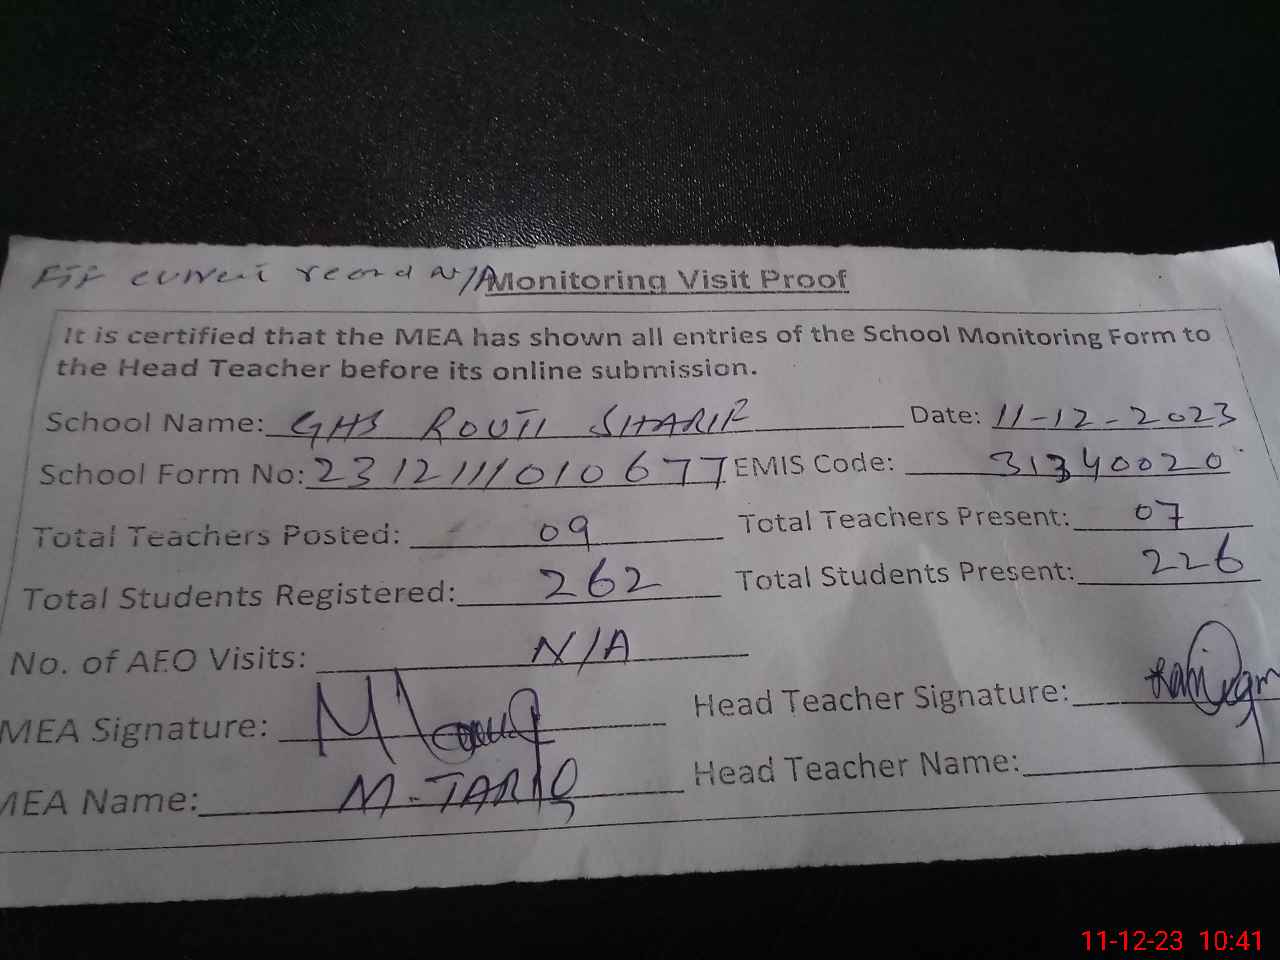 FTF current record N/A Monitoring Visit Proof
It is certified that the MEA has shown all entries of the School Monitoring Form to
the Head Teacher before its online submission.
School Name: GHS ROUTI SHARIF Date: 11-12-2023
School Form No: 2312111010677 EMIS Code: 31340020
Total Teachers Posted: 09 Total Teachers Present: 07
Total Students Registered: 262 Total Students Present: 226
No. of AEO Visits: N/A
MEA Signature: Head Teacher Signature:
MEA Name: M. TARIQ Head Teacher Name:
11-12-23 10:41